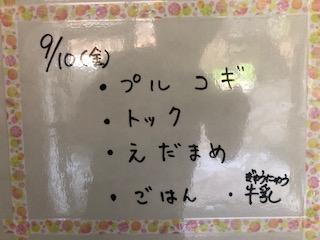 9/10(金)
・プルコギ
・トック
・えだまめ
・ごはん ・牛乳
ぎゅうにゅう